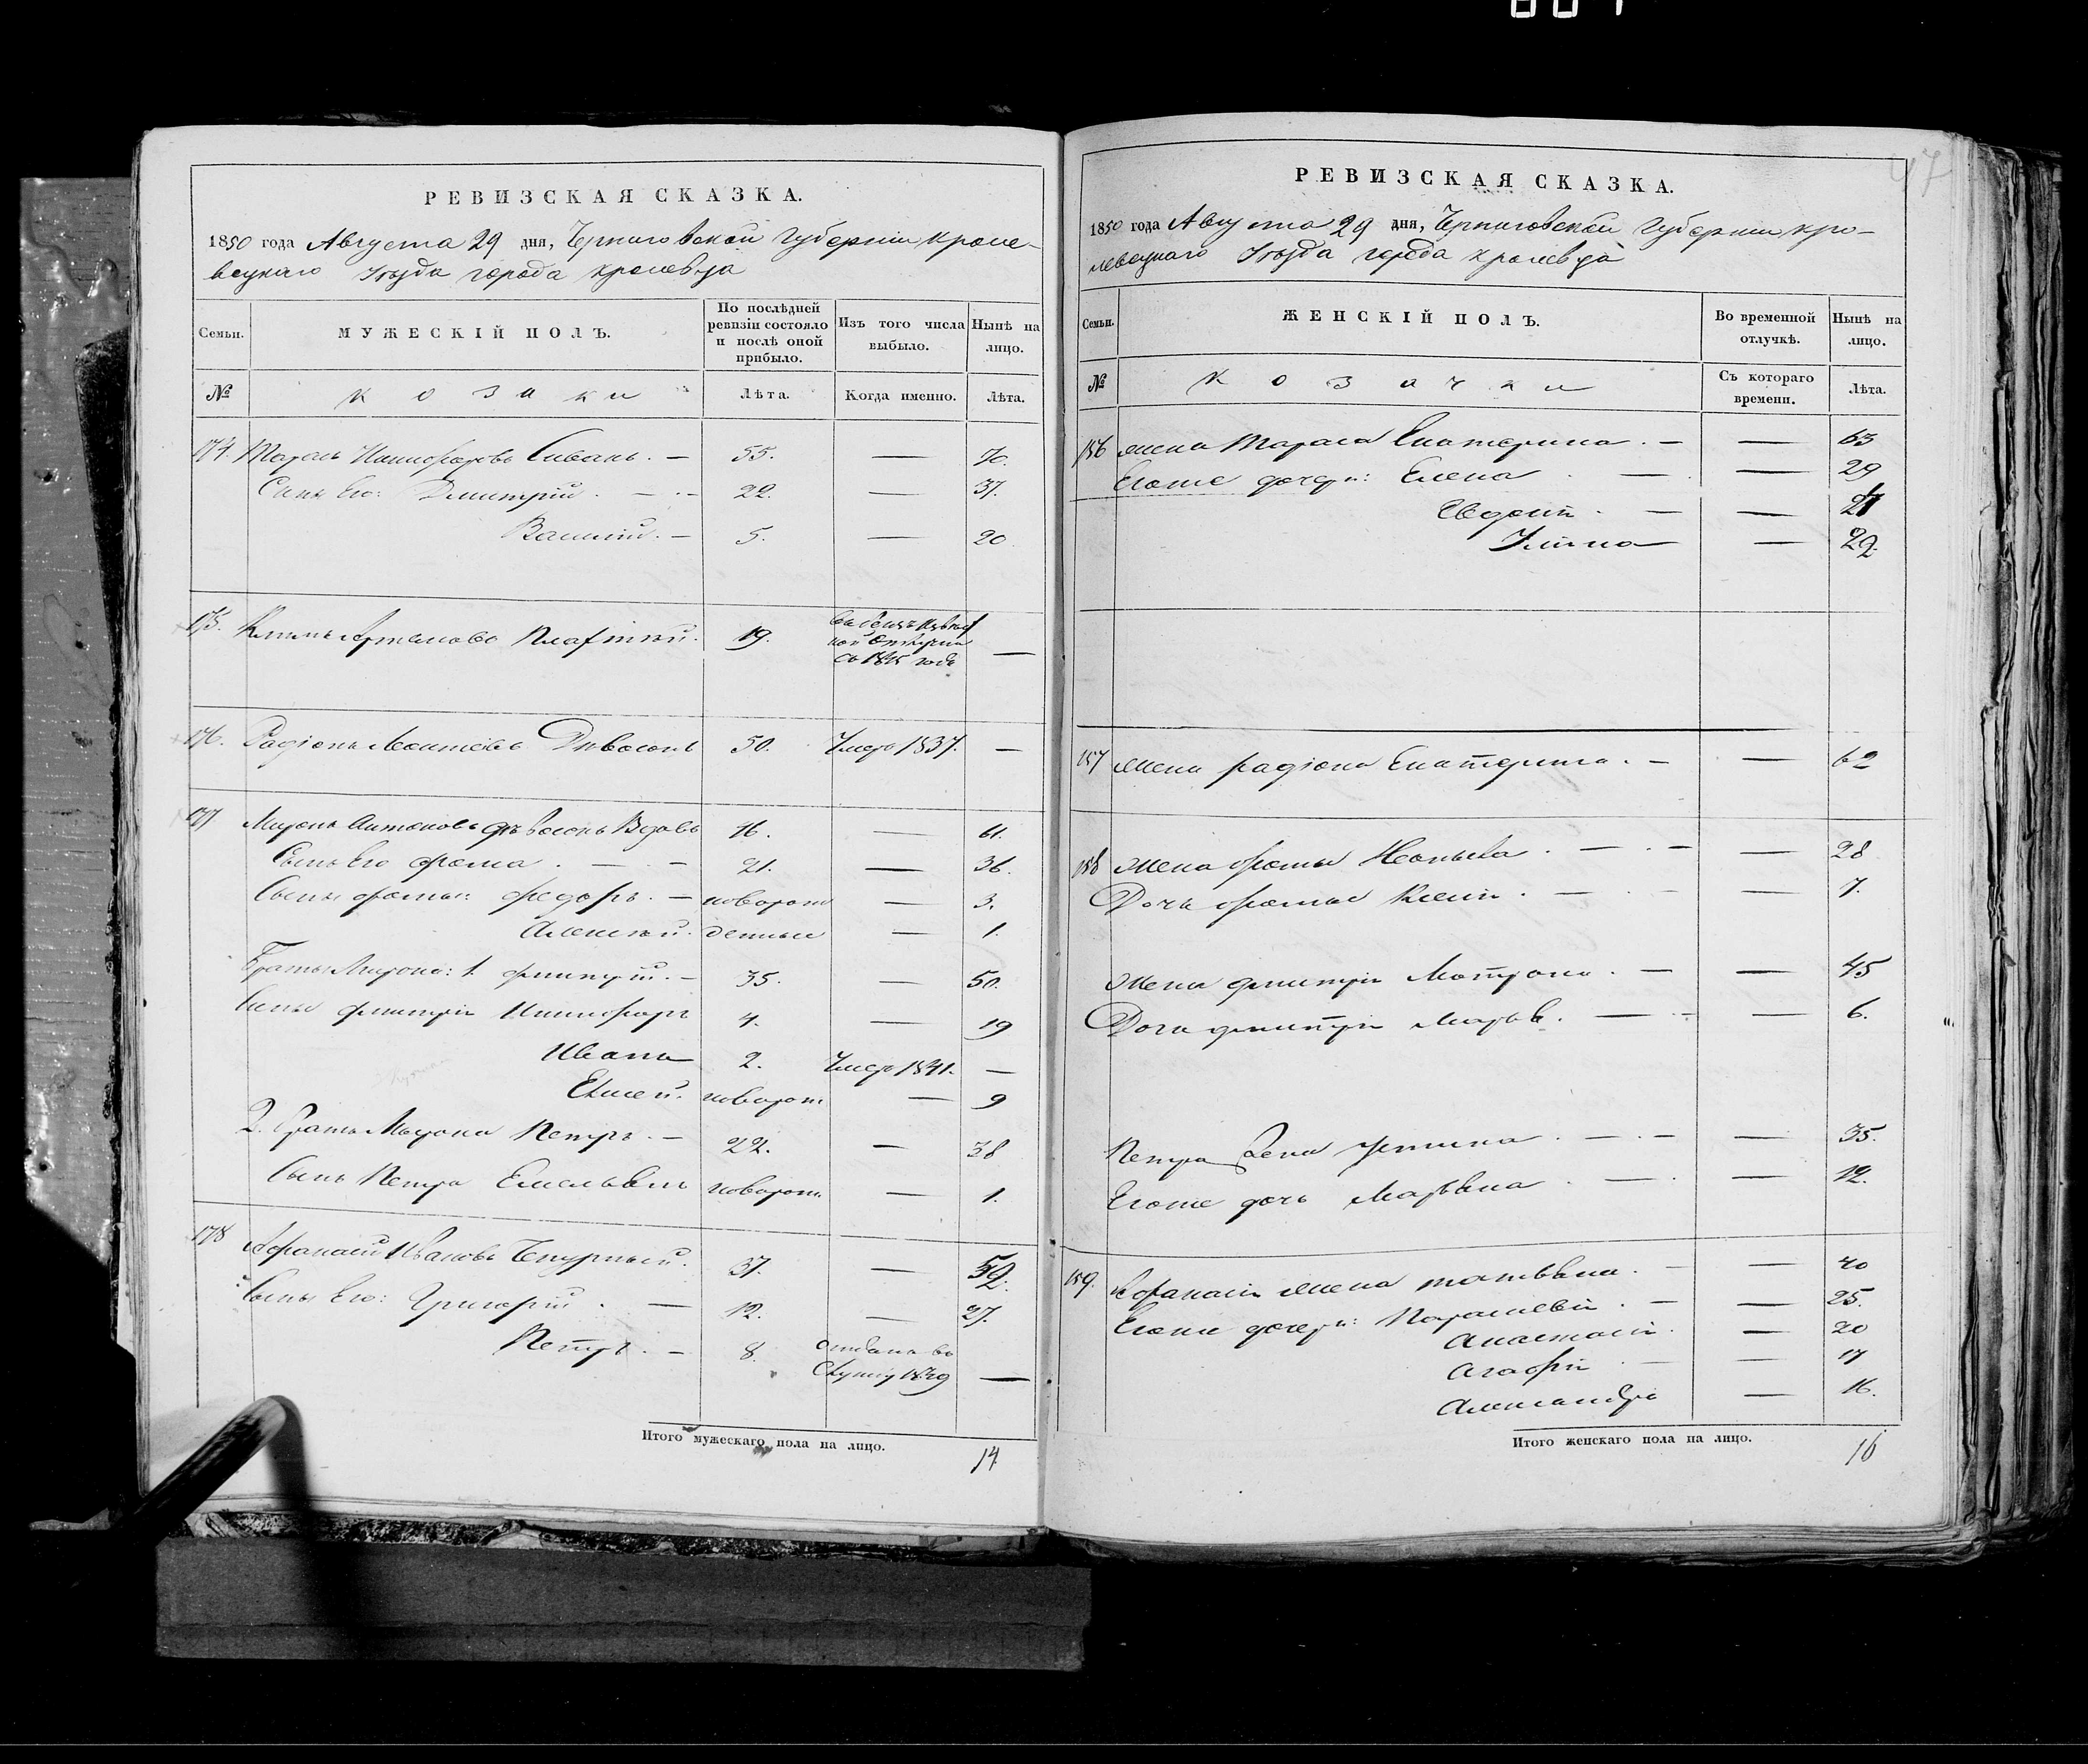 РЕВИЗСКАЯ СКАЗКА.
1850 года Августа 29 дня, Черниговской Губерніи Кроле-
вецкаго Уѣзда города Кролевца
Семьи.
МУЖЕСКІЙ ПОЛЪ.
По послѣдней ревизіи состояло и послѣ оной прибыло.
Изъ того числа выбыло.
Нынѣ на лицо.
№
Козаки
Лѣта.
Когда именно.
Лѣта.
174. Тарасъ Никифоровъ — 55. — 70.
Сыны Его: Дмитрій — 22. — 37.
Василій. — 5. — 20
175. Климъ 19. —
съ 1845 года
176. Радіонъ 50. Умеръ 1837. —
177 Миронъ Антоновъ Вдовъ 46. — 61.
Сынъ Его Фома — 21. — 36.
Сыны Фомы: Федоръ — новорож — 3.
Алексѣй. денные — 1.
Братья Мирона: 1. Дмитрій. — 35. — 50.
Сыны Дмитрія Никифоръ 4. — 19
Иванъ 2. Умеръ 1841. —
Елисей. новорож. — 9
2. Братъ Мирона Петръ. — 22. — 38
Сынъ Петра Емельянъ новорож. — 1.
178 Афанасій Ивановъ 37. — 52.
Сыны Его: Григорій — 12. — 27.
Петръ. — 8. Отданъ въ
1849 —
Итого мужескаго пола на лицо. 14
47
РЕВИЗСКАЯ СКАЗКА.
1850 года Августа 29 дня, Черниговской Губерніи Кро-
левецкаго Уѣзда города Кролевца
Семьи.
ЖЕНСКІЙ ПОЛЪ.
Во временной отлучкѣ.
Нынѣ на лицо.
№
Козачки
Съ котораго времени.
Лѣта.
156 Жена Тараса Екатерина. — — 63
Егоже дочери: Елена — — 29
Евдокія. — —
Уліяна — 22.
157 Жена Радіона Екатерина. — — 62
158 Жена Фомы — — 28
Дочь Фомы Ксенія. — — 7.
Жена Дмитрія Матрона. — — 45
Дочь Дмитрія Марья. — — 6.
Петра Жена Устина. — — 35.
Егоже дочь Марьяна — — 12.
159. Афанасія Жена Татьяна. — — 40
Егоже дочери: Параскевія. — — 25.
Анастасія. — 20
Агафія — — 17
Александра — 16.
Итого женскаго пола на лицо. 16